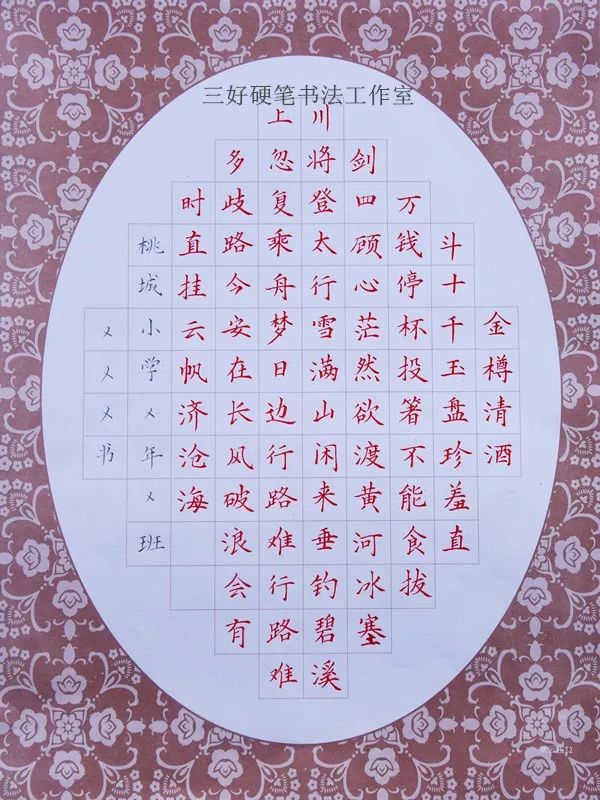 三好硬笔书法工作室
金樽清酒
斗十千玉盘珍羞直
万钱停杯投箸不能食拔
剑四顾心茫然欲渡黄河冰塞
川将登太行雪满山闲来垂钓碧溪
上忽复乘舟梦日边行路难行路难
多歧路今安在长风破浪会有
时直挂云帆济沧海
桃城小学㐅年㐅班
㐅㐅㐅书